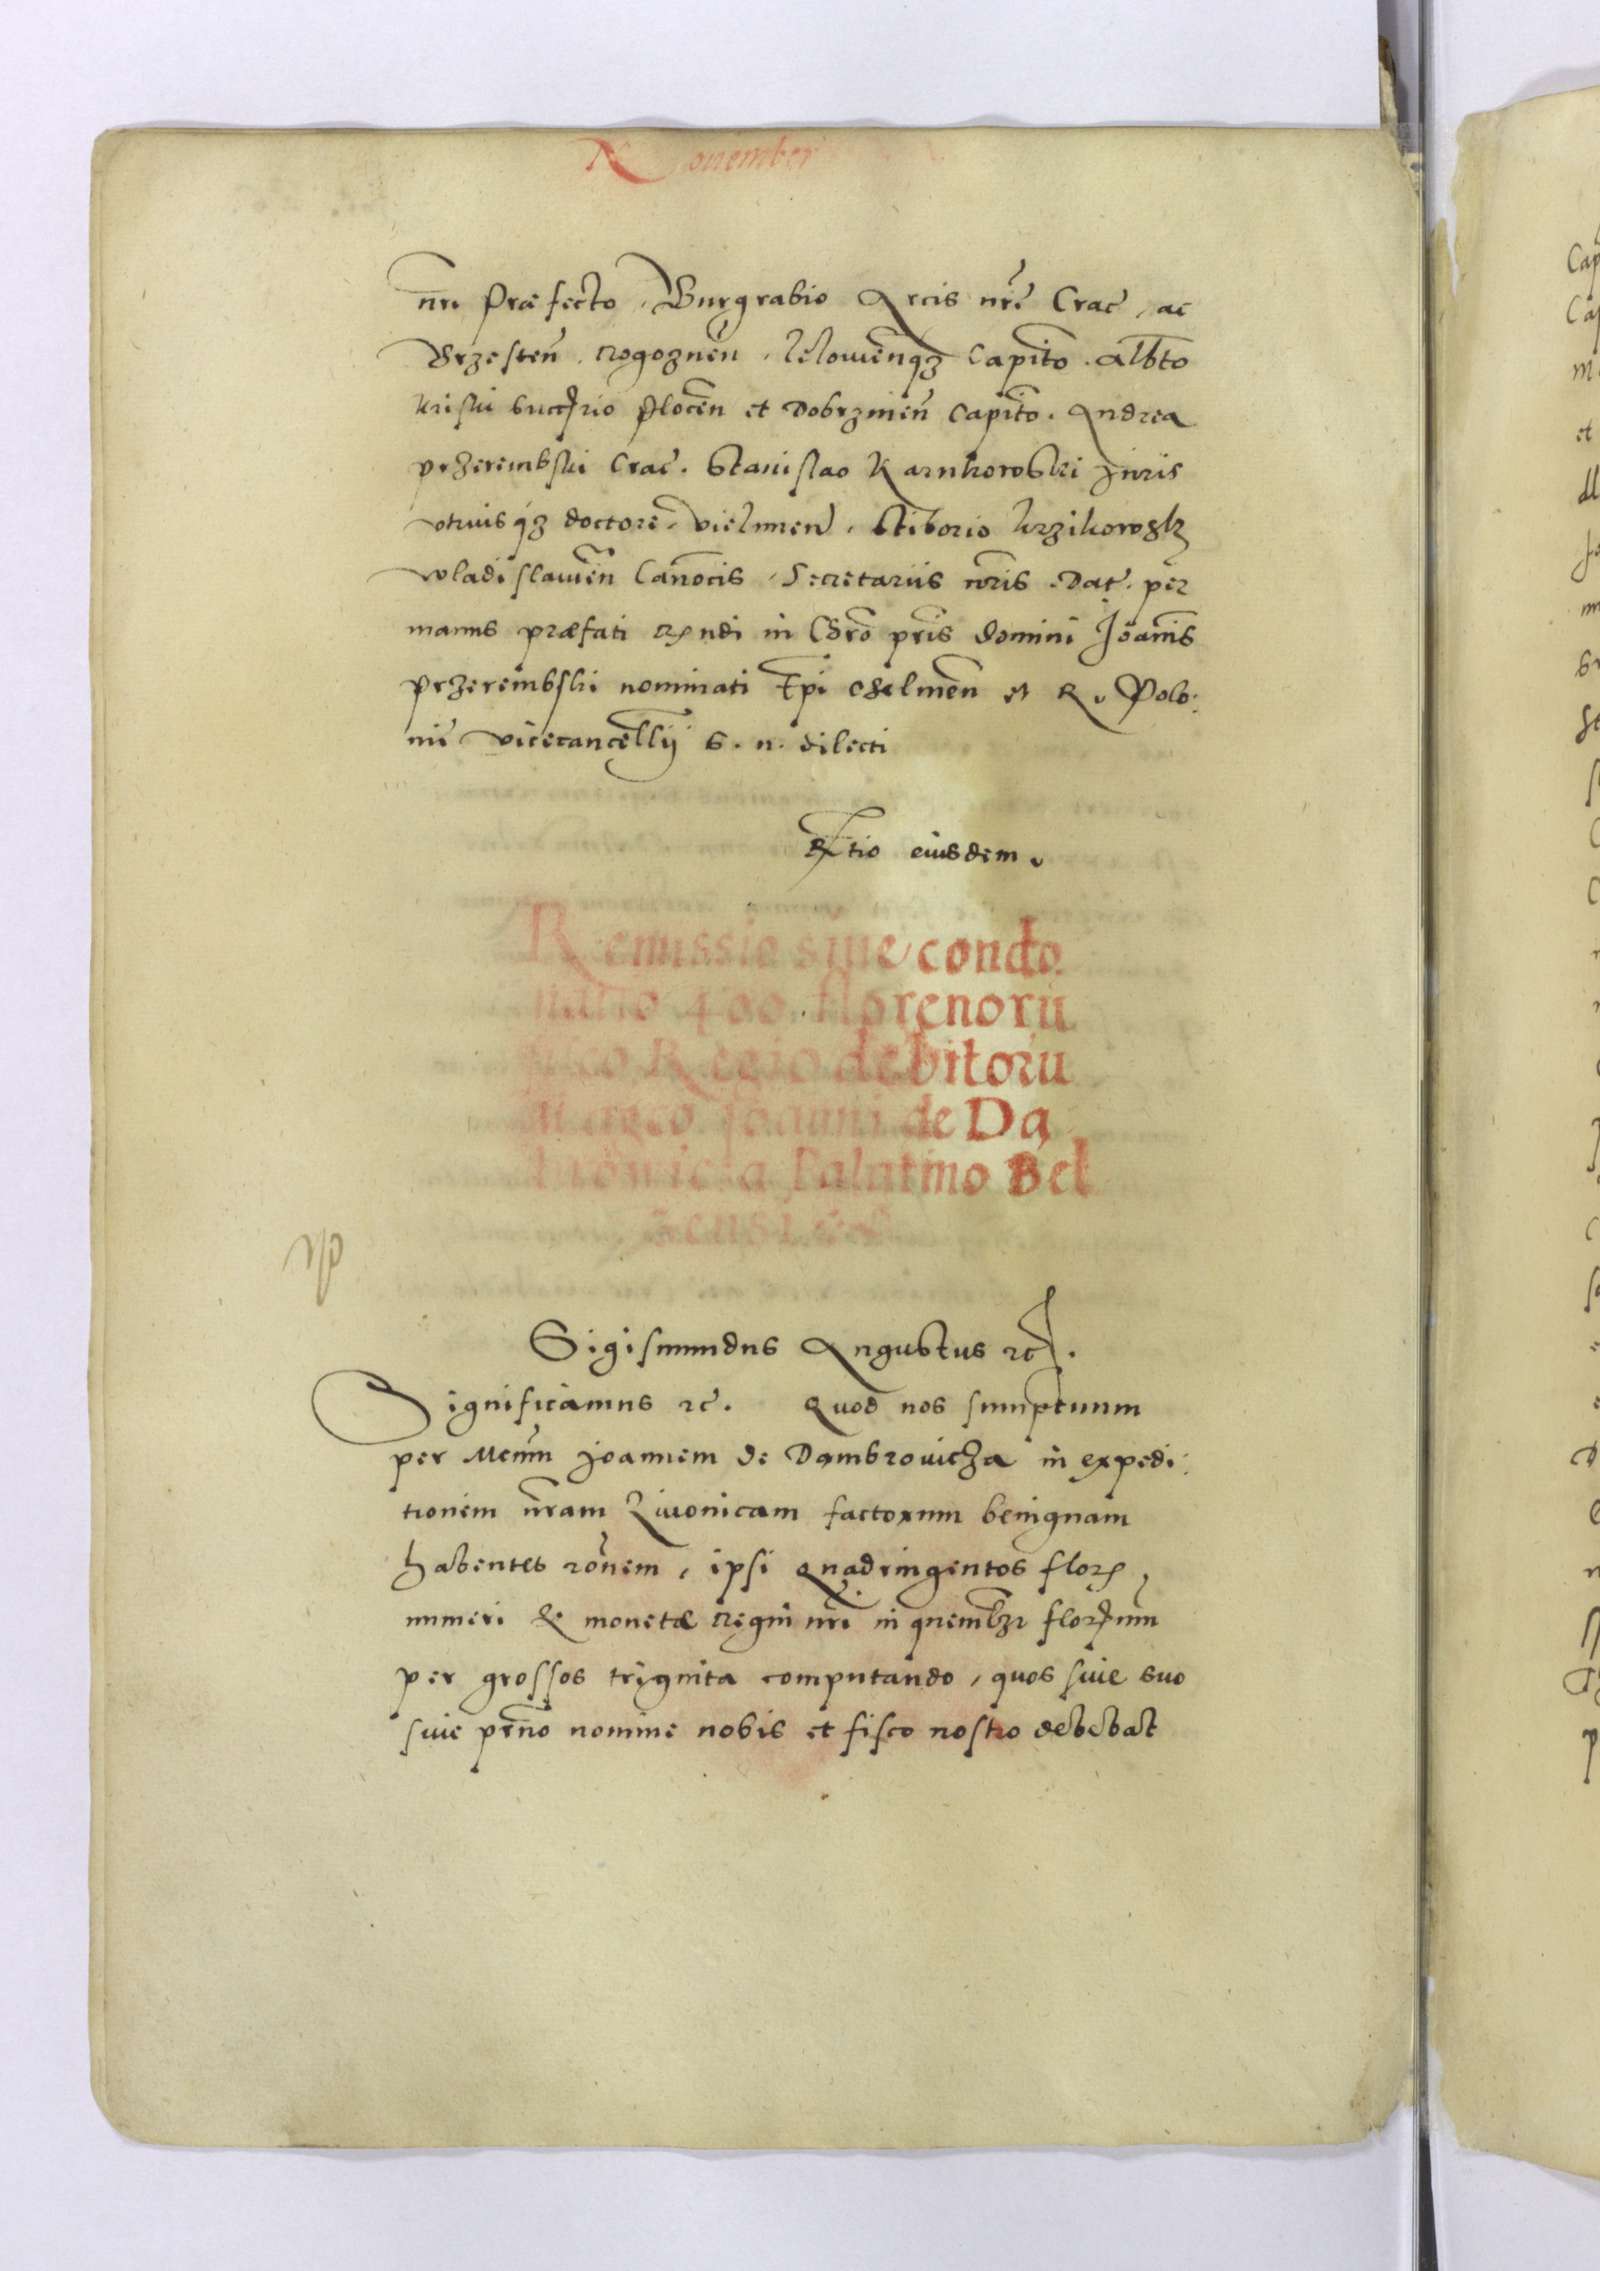 Nouember
nri Præfecto, Burgrabio Arcis nrē Crac̄, ac
Brzesten̄, rogoznen̄, lelowien̄qȝ Capitō. Albtō
kriski succrio Plocen̄ et Dobrzinen̄ Capitō. Andrea
przerembski Crac̄. Stanislao Karnkowski Juris
vtriusqȝ doctore, vielunen̄, Stiborio krzikowski
wladislauien̄ Canocis, Secretariis nris. Dat. per
manus præfati Rndi in Chro pris domini Joānis
przerembski nominati Epi Chelmen̄ et R. Polo:
niē vicecancellij s. n. dilecti
Rltio eiusdem.
Remissio siue condo
natio 400 florenorū
fisco Regio debitorū
Magco Joanni de Dą
browicza Palatino Bel
zensi
Sigismundus Augustus rc.
Significamus rc. Quod nos sumptuum
per Mcūm Joannem de Dąmbrowicza in expedi:
tionem nram Liuonicam factorum benignam
habentes ronem, ipsi quadringentos flor,
numeri & monetæ regni nri in quemlibet florenum
per grossos triginta computando, quos siue suo
siue prno nomine nobis et fisco nostro debebat